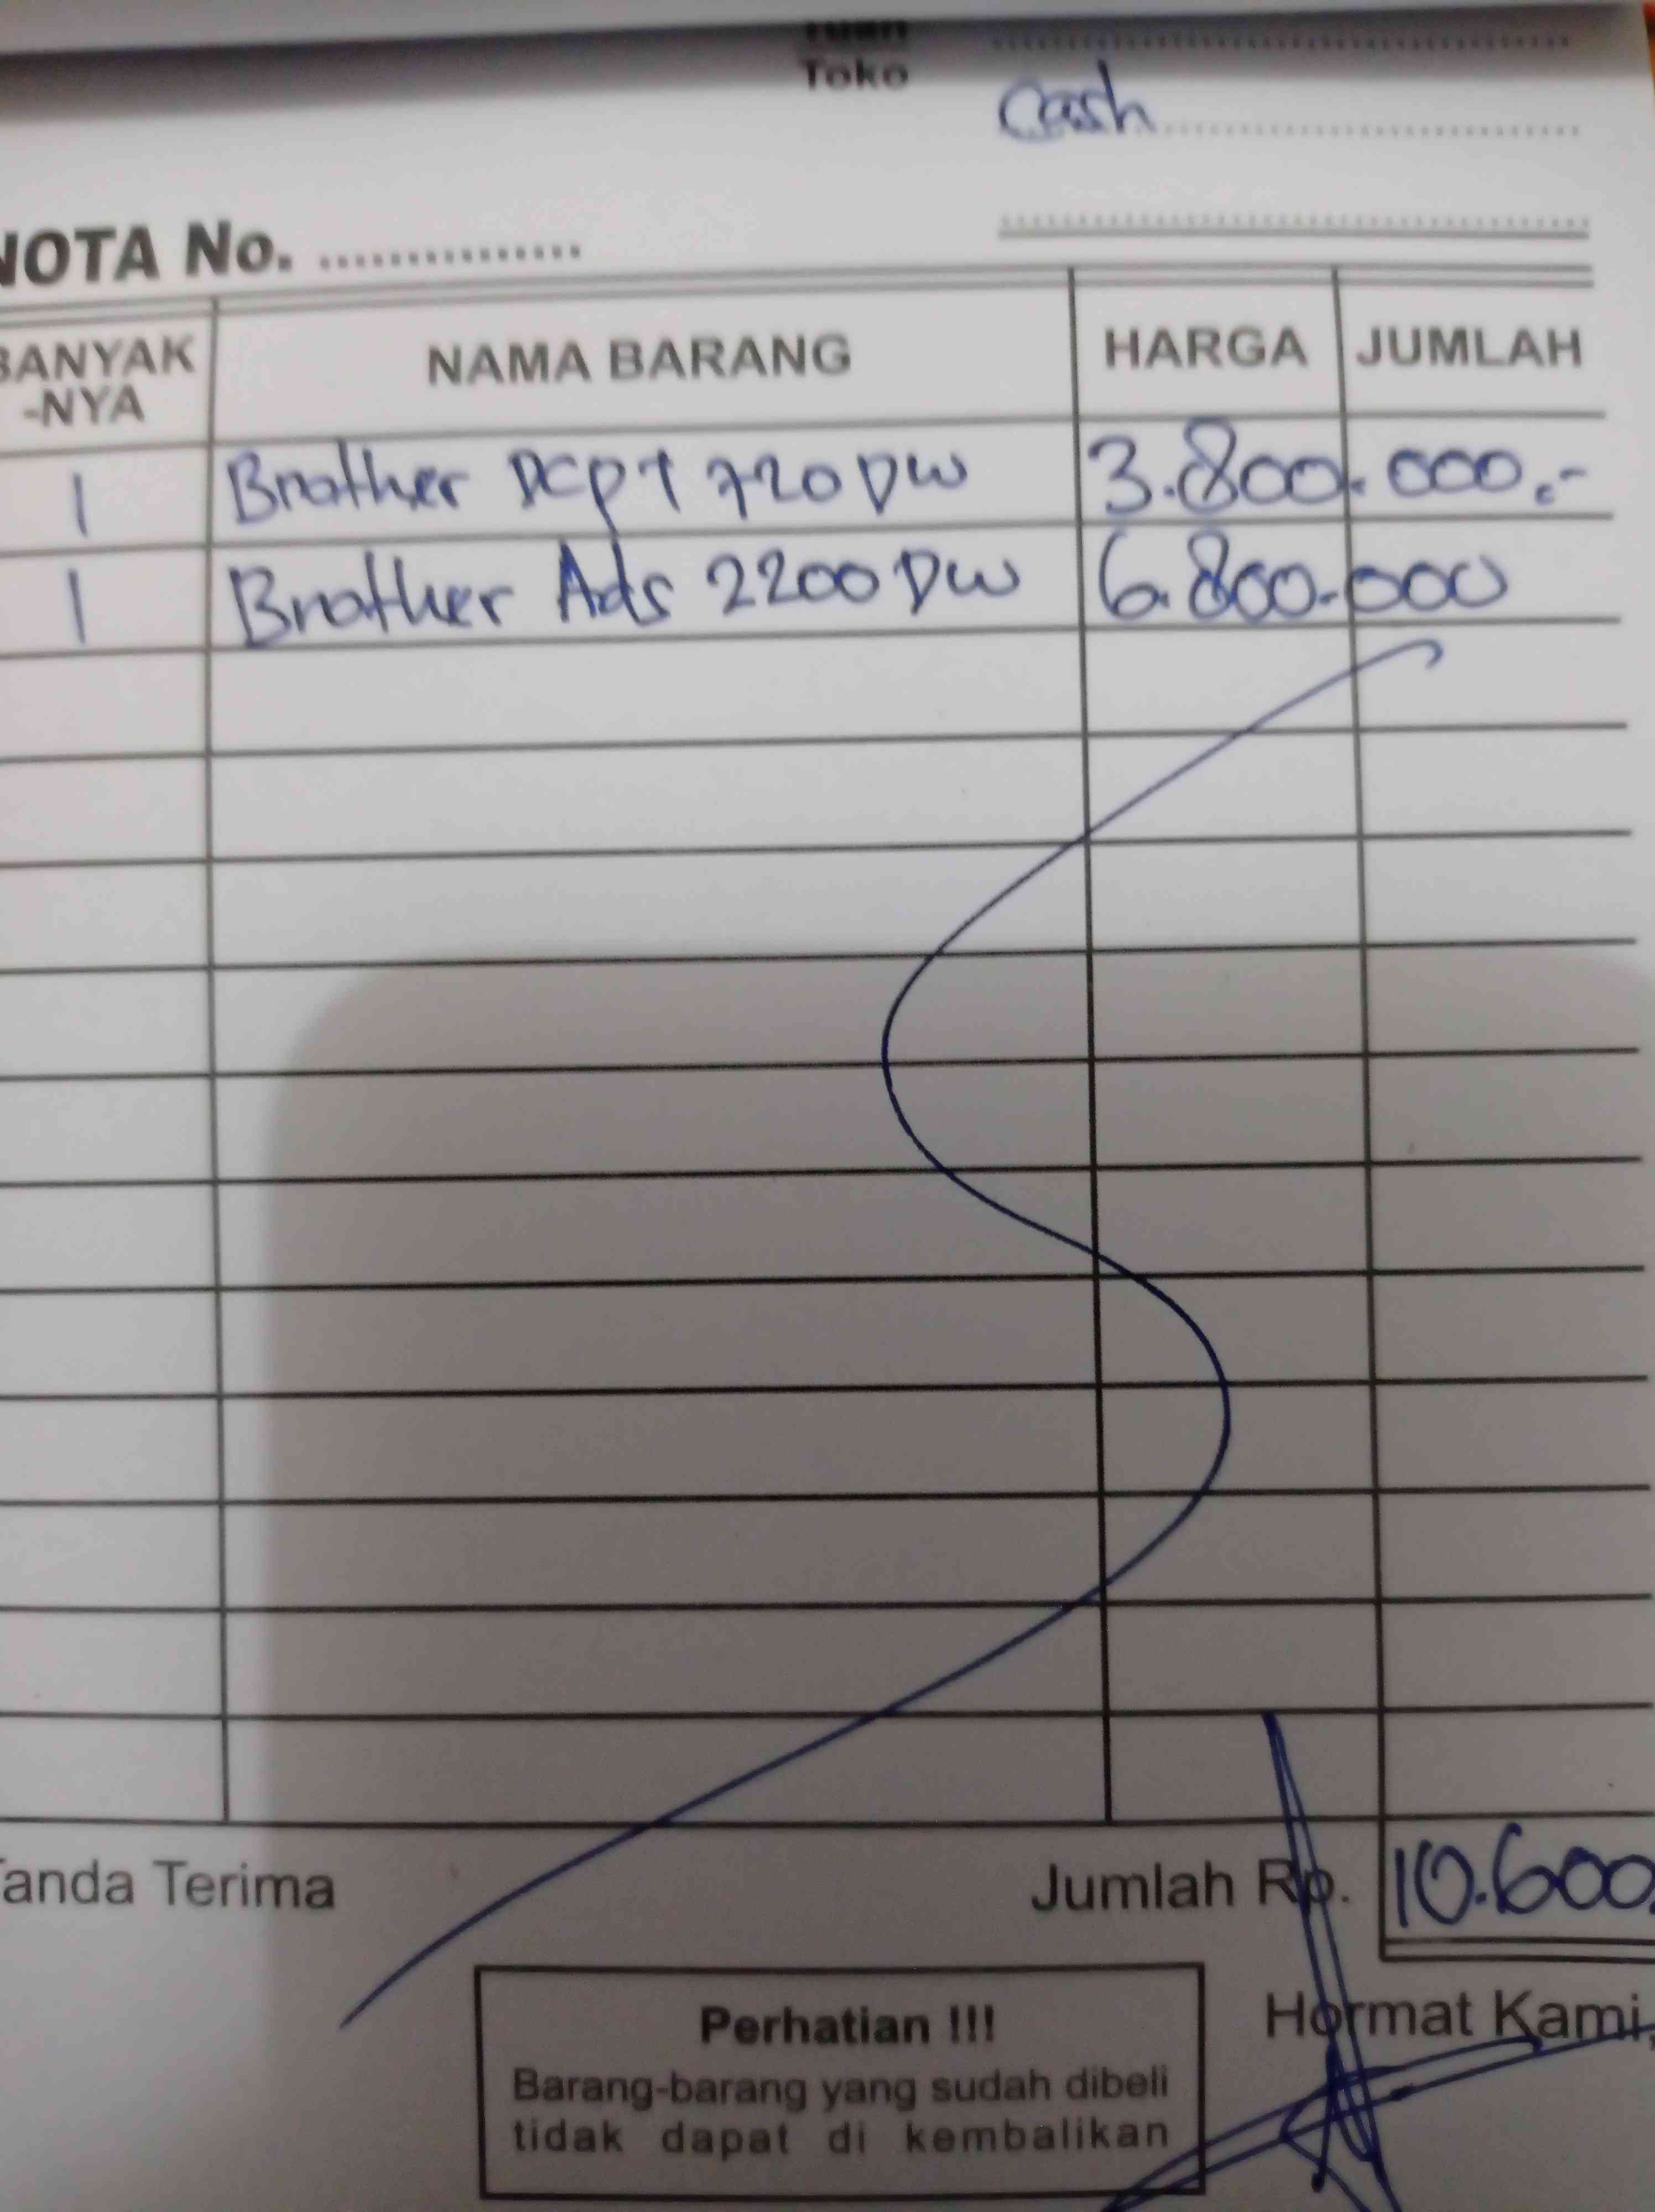 Tuan
Toko
Cash
NOTA No. ...............
BANYAK -NYA NAMA BARANG HARGA JUMLAH
1 Brother DCP T 720 DW 3.800.000.-
1 Brother Ads 2200 DW 6.800.000
Tanda Terima Jumlah Rp. 10.600.
Hormat Kami,
Perhatian !!!
Barang-barang yang sudah dibeli
tidak dapat di kembalikan